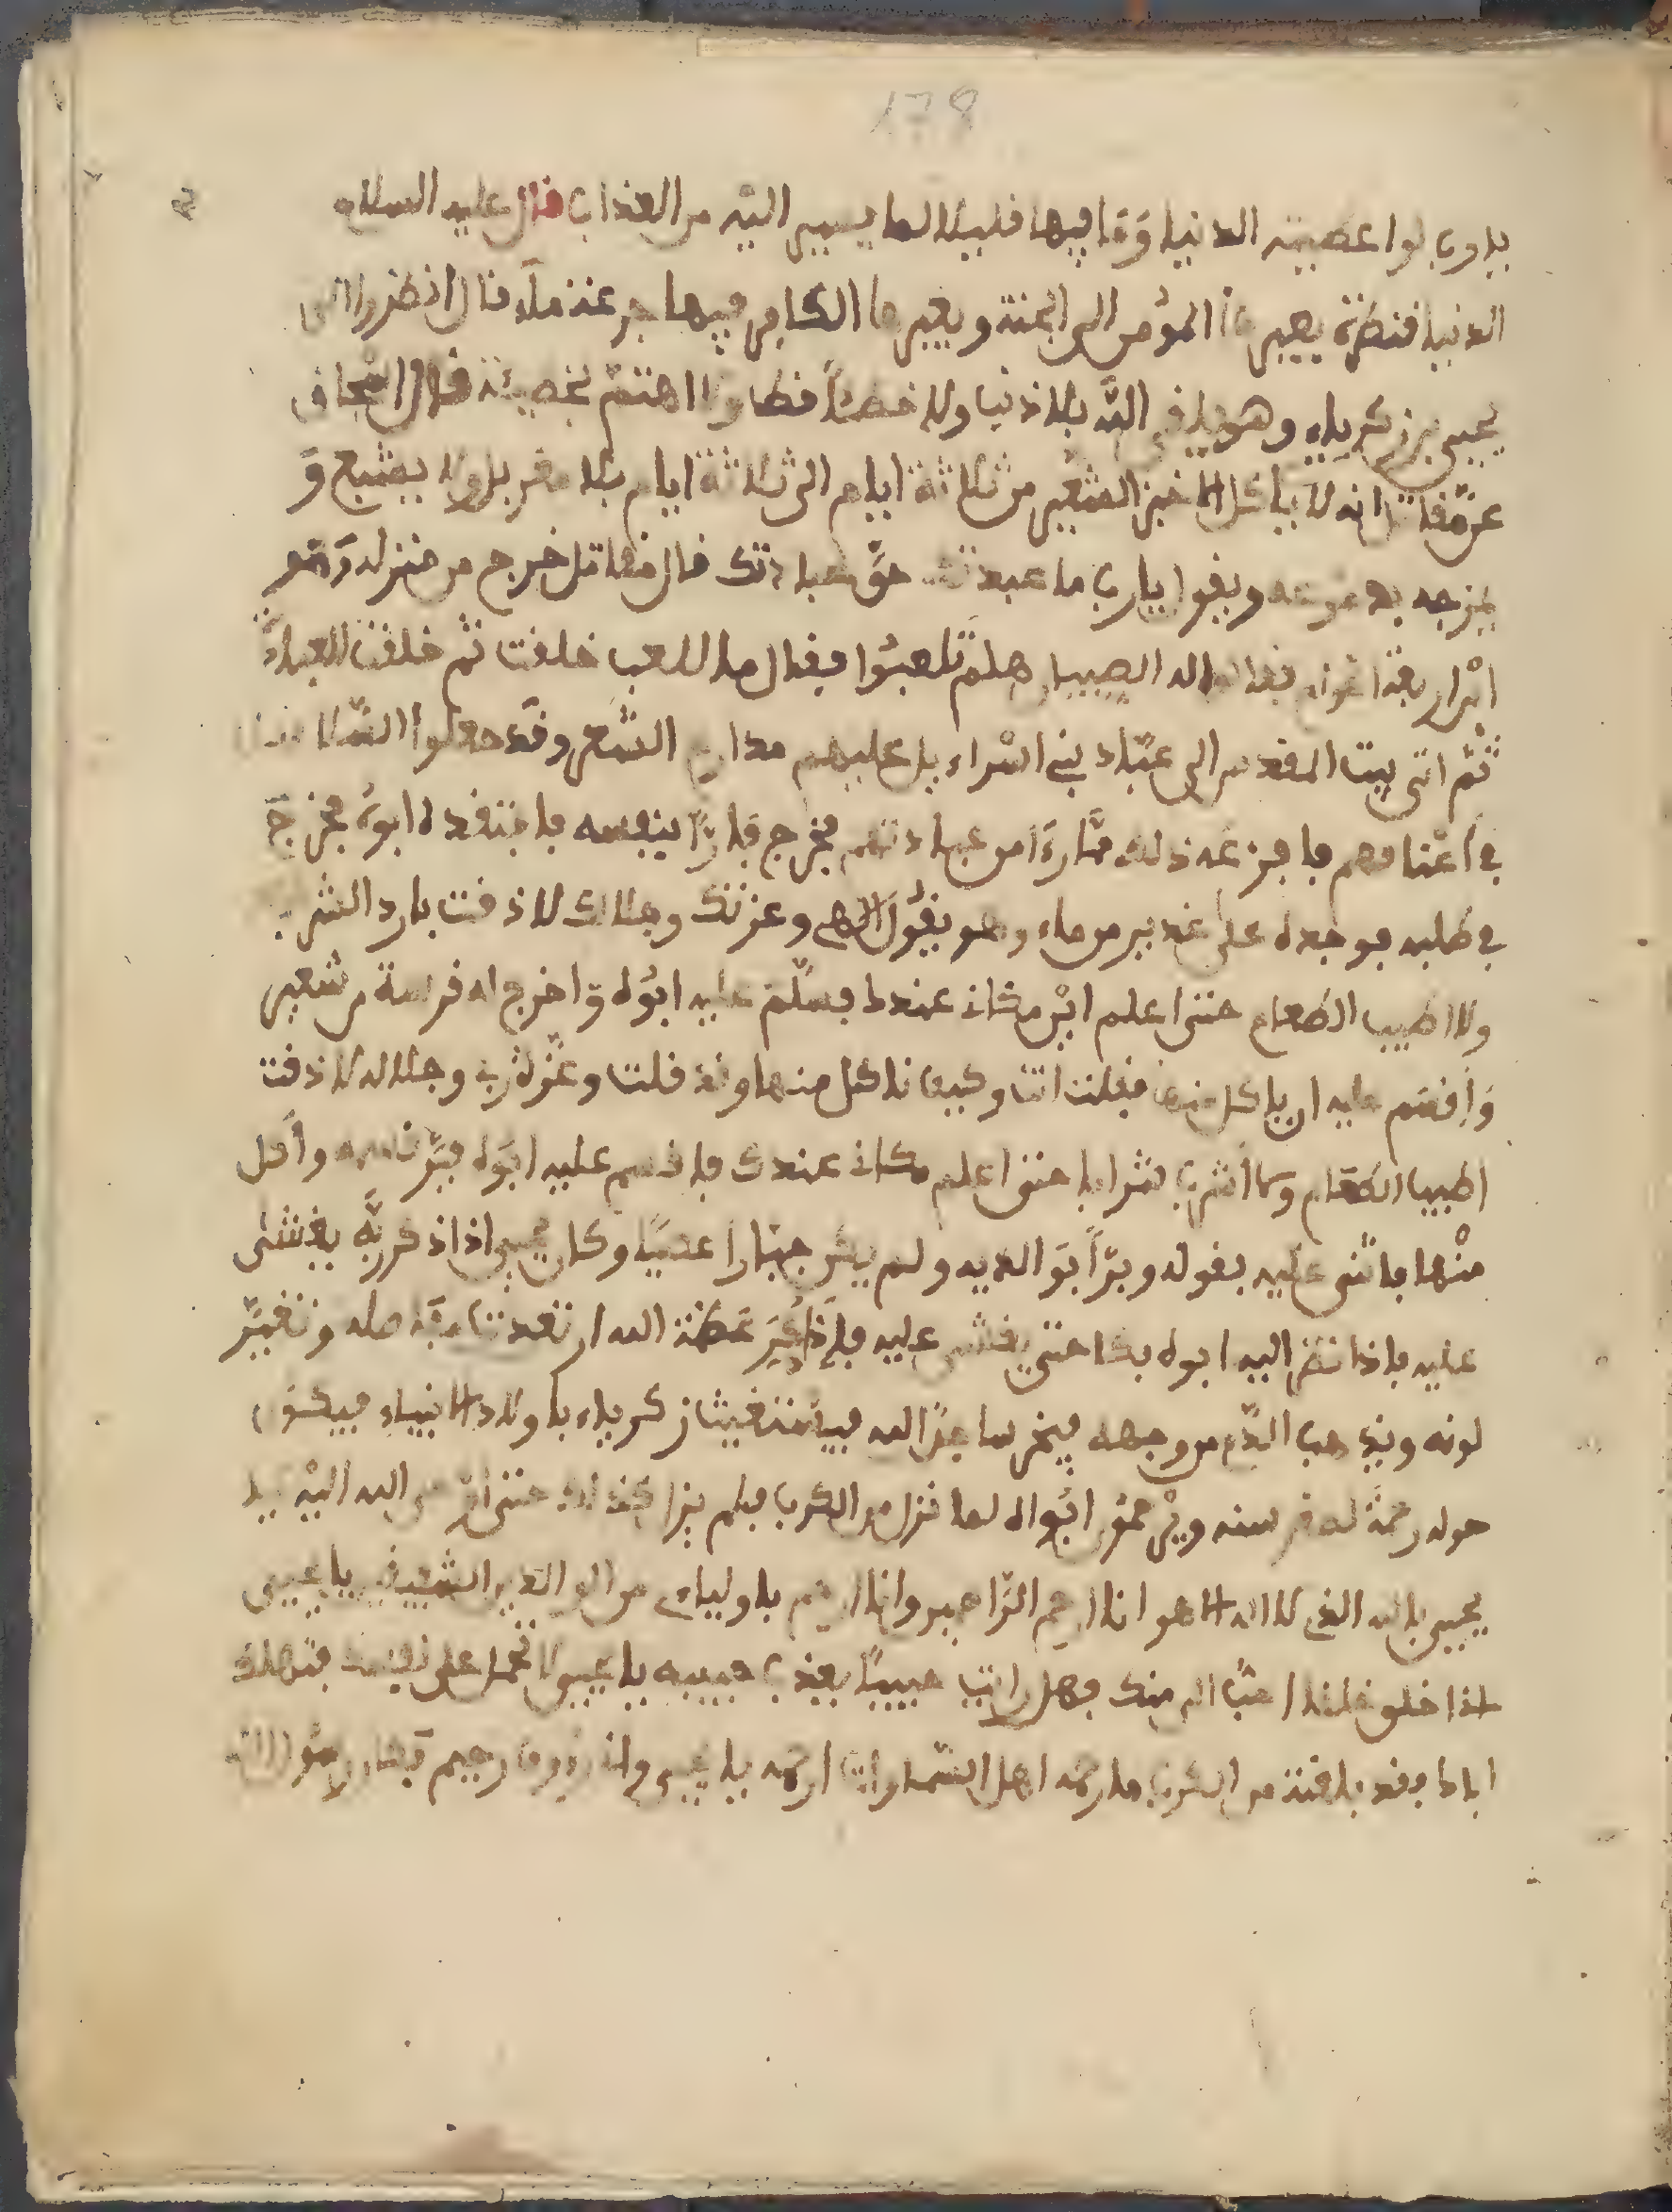 178
يداوي لوا عطيته الدنيا وما فيها قليلا لما يسير اليه من العذاب قال عليه السلام
الدنيا قنطرة يعبرها المؤمن الى الجنة ويعبرها الكافر فيها جرعة ماء قال انظروا الى
يحيى بن زكرياء وهو يلقى الله بلا ذنب ولا خطيئة قط ولا اهتم بخطيئة قال الضحاك
عن مقاتل انه لا ياكل الا خبز الشعير من ثلاثة ايام الى ثلاثة ايام بلا مغربل ولا يشبع و
يمزجه بدموعه ويقول يارب ما عبدتك حق عبادتك قال مقاتل خرج من منزله وهو
ابن اربعة اعوام فقالوا له الصبيان هلم تلعبوا فقال ما للعب خلقت ثم خلقت للعبادة
ثم اتى بيت المقدس الى عباد بني اسراءيل عليهم مدارع الشعر وقد جعلوا السلاسل
في اعناقهم فافزعه ذلك مما رءا من عبادتهم فخرج فارا بنفسه فافتقده ابوه فخرج
في طلبه فوجده على غدير من ماء وهو يقول اللهم وعزتك وجلالك لا ذقت بارد الشراب
ولا اطيب الطعام حتى اعلم اين مكاني عندك فسلم عليه ابوه واخرج له قرصة من شعير
واقسم عليه ان ياكل منها فقلت انت وكيف ناكل منها وقد قلت وعزة ربي وجلاله لا ذقت
اطيب الطعام وما اشرب شرابا حتى اعلم مكاني عندك فاقسم عليه ابوه فبر قسمه واكل
منها فاثنى عليه بقوله وبرا بوالديه ولم يكن جبارا عصيا وكان يحيى اذا ذكر ربه يغشى
عليه فاذا نظر اليه ابوه بكا حتى يغشى عليه فاذا ذكر عظمة الله ارتعدت مفاصله وتغير
لونه ويذهب الدم من وجهه فيخر ساجدا لله فيستغيث زكرياء باولاد الانبياء فيبكون
حوله رحمة لله ويرحمون ابواه لما نزل من الكرب فلم يزل كذلك حتى اوحى الله اليه يا
يحيى بالله الذي لا اله الا هو انا ارحم الراحمين وانا ارحم باوليائي من الوالدين الشفيقين يا يحيى
لذا خلق خلقا احب الي منك فهل رايت حبيبا يعذب حبيبه يا يحيى لا تحمل على نفسك فتهلك
اباك فقد بلغت من الكرب ما رحمه اهل السماوات ارحمه يا يحيى واني رءوف رحيم